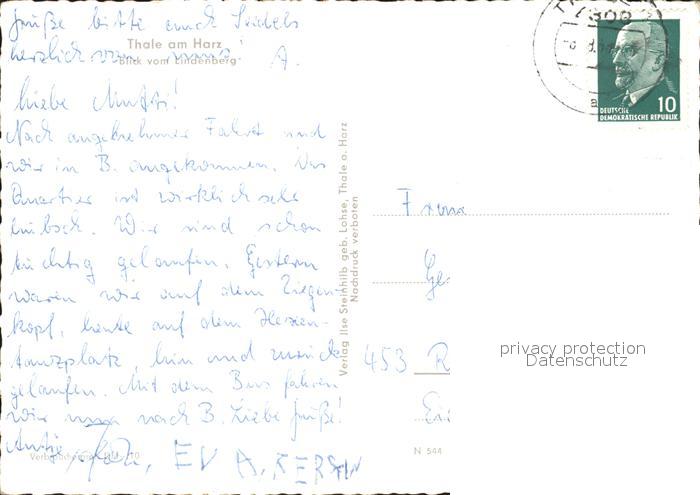 Grüße bitte auch Seidels
herzlich von uns! A.
Thale am Harz
Blick vom Lindenberg
Liebe Mutti!
Nach angenehmer Fahrt sind
wir in B. angekommen. Das
Quartier ist wirklich sehr
hübsch. Wir sind schon
tüchtig gelaufen. Gestern
waren wir auf dem Ziegen-
kopf, heute auf dem Hexen-
tanzplatz, hin und zurück
gelaufen. Mit dem Bus fahren
wir nach B. Liebe Grüße!
Antje
EVA, KERSTIN
Verlag Ilse Steinhilb geb. Lohse, Thale a. Harz
Nachdruck verboten
N 544
DEUTSCHE
DEMOKRATISCHE REPUBLIK
10
Frau
Ge
453 R
privacy protection
Datenschutz